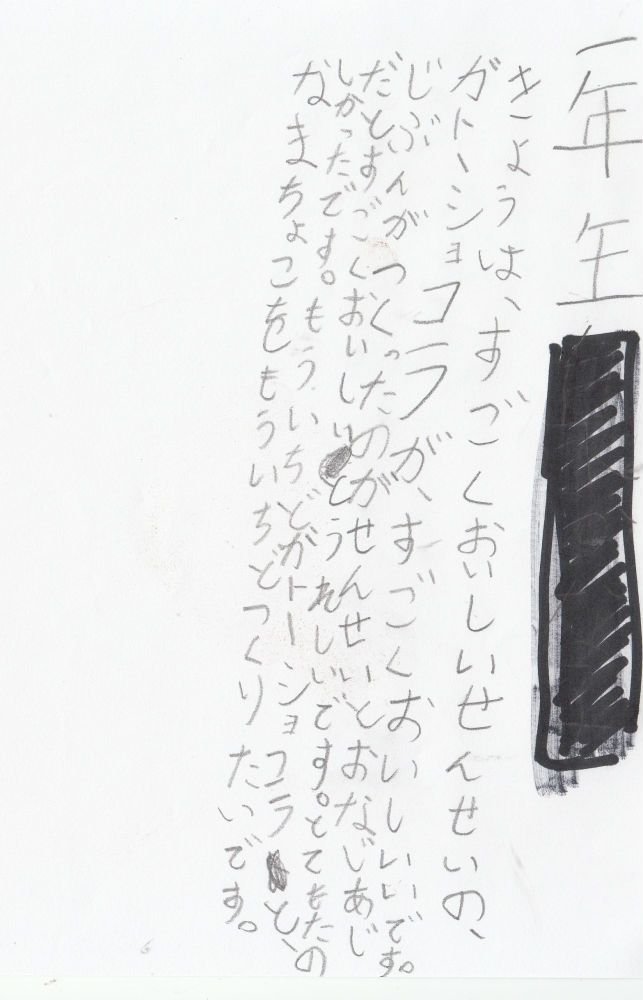 一年生
きょうは、すごくおいしいせんせいの、
ガトーショコラが、すごくおいしいいです。
じぶんがつくったのがせんせいとおなじあじ
だとすごくおいしいとうれしいです。とてもたの
しかったです。もういちどガトーショコラと、
なまちょこをもういちどつくりたいです。